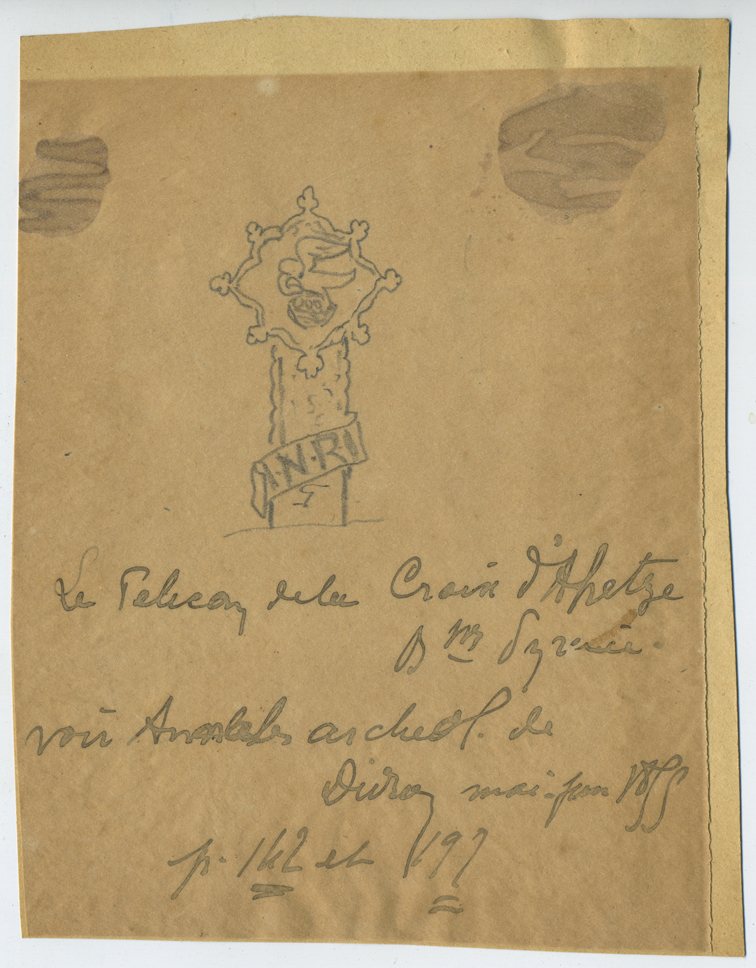 I·N·R·I
Le Pelican de la Croix d'Ahetze
Bses Pyrénées.
voir Annales archeol. de
Didron mai-juin
p. 162 et 197